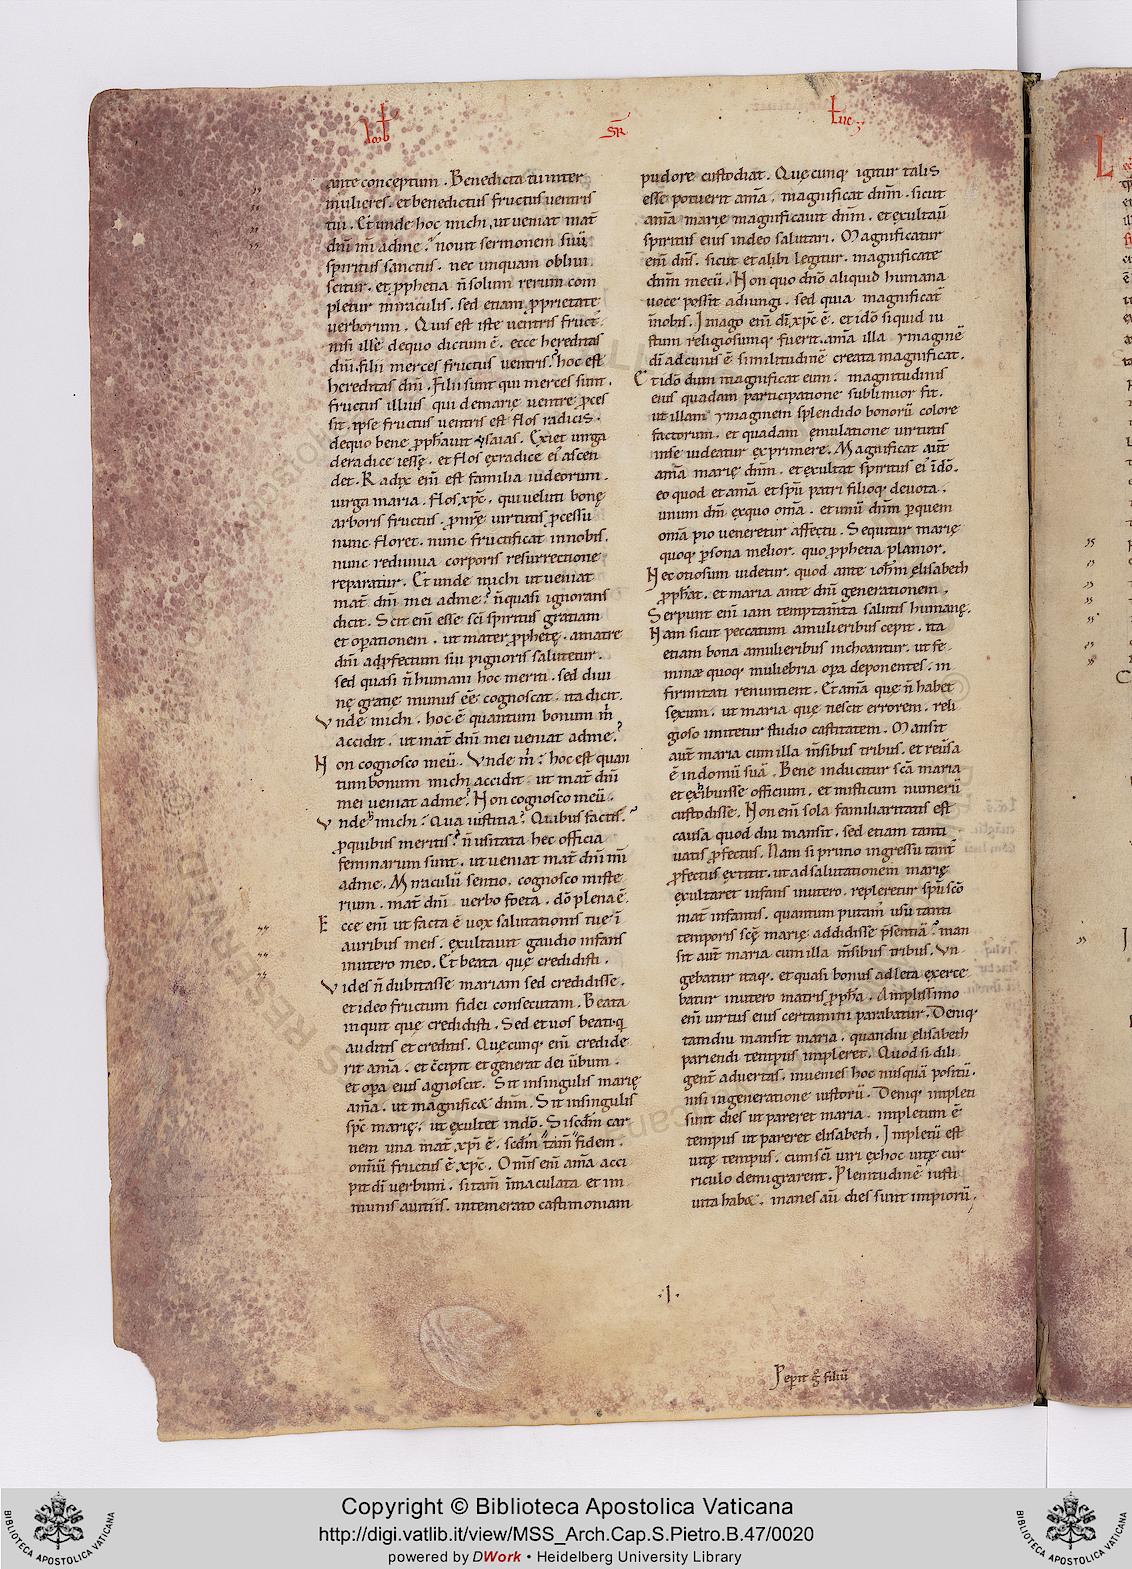 Lib
SR
Luc
ante conceptum. Benedicta tu inter
mulieres. et benedictus fructus ventris
tui. Et unde hoc michi, ut veniat mat̄
dnī mī ad me? novit sermonem suū
spiritus sanctus. nec unquam oblivi
scitur. et ꝓphetia n̄ solum rerum com
pletur miraculis. sed etiam ꝓprietate
verborum. Quis est iste ventris fruct᷒
nisi ille de quo dictum ē. ecce hereditas
dnī. filii merces fructus ventris? hoc est
hereditas dnī. Filii sunt qui merces sunt.
fructus illius qui de marię ventre ꝓces
sit. ipse fructus ventris est flos radicis.
de quo bene ꝓphavit ysaias. Exiet virga
de radice iessę. et flos ex radice ei᷒ ascen
det. Radix enī est familia iudeorum.
virga maria. flos xp̄c. qui veluti bonę
arboris fructus. ꝓ nr̄ę virtutis ꝓcessu
nunc floret. nunc fructificat in nobis.
nunc rediviva corporis resurrectione
reparatur. Et unde michi ut veniat
mat̄ dnī mei ad me? n̄ quasi ignorans
dicit. Scit enī esse sc̄i spiritus gratiam
et oꝑationem. ut mater ꝓphetę. a matre
dnī ad ꝓfectum sui pignoris salutetur.
sed quasi n̄ humani hoc meriti. sed divi
nę gratię munus eē cognoscat. ita dicit.
Unde michi. hoc ē quantum bonum m̄
accidit. ut mat̄ dnī mei veniat ad me?
Non cognosco meū. Unde m̄? hoc est quan
tum bonum michi accidit ut mat̄ dnī
mei veniat ad me? Non cognosco meū.
Unde michi? Qua iustitia? Quibus factis?
ꝓ quibus meritis? n̄ usitata hec officia
feminarum sunt. ut veniat mat̄ dnī mī
ad me. Miraculū sentio. cognosco miste
rium. mat̄ dnī verbo foeta. dō plena ē.
Ecce enī ut facta ē vox salutationis tue ī
auribus meis. exultavit gaudio infans
in utero meo. Et beata quę credidisti.
Vides n̄ dubitasse mariam sed credidisse.
et ideo fructum fidei consecutam. Beata
inquit quę credidisti. Sed et vos beati q̄
auditis et creditis. Quęcunq; enī credide
rit anīa. et c̄cipit et generat dei ūbum.
et oꝑa eius agnoscit. Sit in singulis marię
anīa. ut magnificet dnm̄. Sit in singulis
sp̄c marię. ut exultet in dō. Si scdm̄ car
nem una mat̄ xp̄i ē. scdm̄ tam̄ fidem.
omniū fructus ē xp̄c. Omīs enī anīa acci
pit dī verbum. si tam̄ īmaculata et im
munis a vitiis. intemerato castimoniam
pudore custodiat. Quęcunq; igitur talis
esse potuerit anīa. magnificat dnm̄. sicut
anīa marię magnificavit dnm̄. et exultaū
spiritus eius in deo salutari. Magnificatur
enī dn̄s. sicut et alibi legitur. magnificate
dnm̄ mecū. Non quo dn̄o aliquid humana
voce possit adiungi. sed quia magnificat̄
in nobis. Imago enī dī xp̄c ē. et idō si quid iu
stum religiosumq; fuerit anīa illa ymaginē
dī ad cuius ē similitudinē creata magnificat.
Et idō dum magnificat eum. magnitudinis
eius quadam participatione sublimior fit.
ut illam ymaginem splendido bonorū colore
factorum. et quadam ęmulatione virtutis
in se videatur exprimere. Magnificat aūt
anīa marię dnm̄. et exultat spiritus ei᷒ ī dō.
eo quod et anīa et spū patri filioq; devota.
unum dm̄ ex quo omīa. et unū dnm̄ ꝑ quem
omīa pio veneretur affectu. Sequitur marię
quoq; ꝑsona melior. quo ꝓphetia planior.
Nec otiosum videtur. quod ante ioh̄m elisabeth
ꝓphat. et maria ante dnī generationem.
Serpunt enī iam temptam̄ta salutis humanę.
Nam sicut peccatum a mulieribus cepit. ita
etiam bona a mulieribus inchoantur. ut fe
minæ quoq; muliebria oꝑa deponentes. in
firmitati renuntient. Et anīa quę n̄ habet
sexum. ut maria quę nescit errorem. reli
gioso imitetur studio castitatem. Mansit
aūt maria cum illa m̄sibus tribus. et reūsa
ē in domū suā. Bene inducitur sc̄a maria
et exhibuisse officium. et misticum numerū
custodisse. Non enī sola familiaritatis est
causa quod diu mansit. sed etiam tanti
vatis ꝓfectus. Nam si primo ingressu tant᷒
ꝓfectus extitit. ut ad salutationem marię
exultaret infans in utero. repleretur spū sc̄o
mat̄ infantis. quantum putam᷒ usū tanti
temporis sc̄ę marię addidisse p̄sentiā? man
sit aūt maria cum illa m̄sibus tribus. Un
gebatur itaq;. et quasi bonus adleta exerce
batur in utero matris ꝓpha. Amplissimo
enī virtus eius certamini parabatur. Deniq;
tam diu mansit maria. quandiu elisabeth
pariendi tempus impleret. Quod si dili
gent̄ advertas. invenies hoc nusquā positū.
nisi in generatione iustorū. Deniq; impleti
sunt dies ut pareret maria. impletum ē
tempus ut pareret elisabeth. Impletū est
vitę tempus. cum sc̄i viri ex hoc vitę cur
riculo demigrarent. Plenitudinē iusti
vita habet. inanes aūt dies sunt impiorū.
.I.
Peperit g° filiū
Copyright © Biblioteca Apostolica Vaticana
http://digi.vatlib.it/view/MSS_Arch.Cap.S.Pietro.B.47/0020
powered by DWork • Heidelberg University Library
BIBLIOTECA APOSTOLICA VATICANA
BIBLIOTECA APOSTOLICA VATICANA